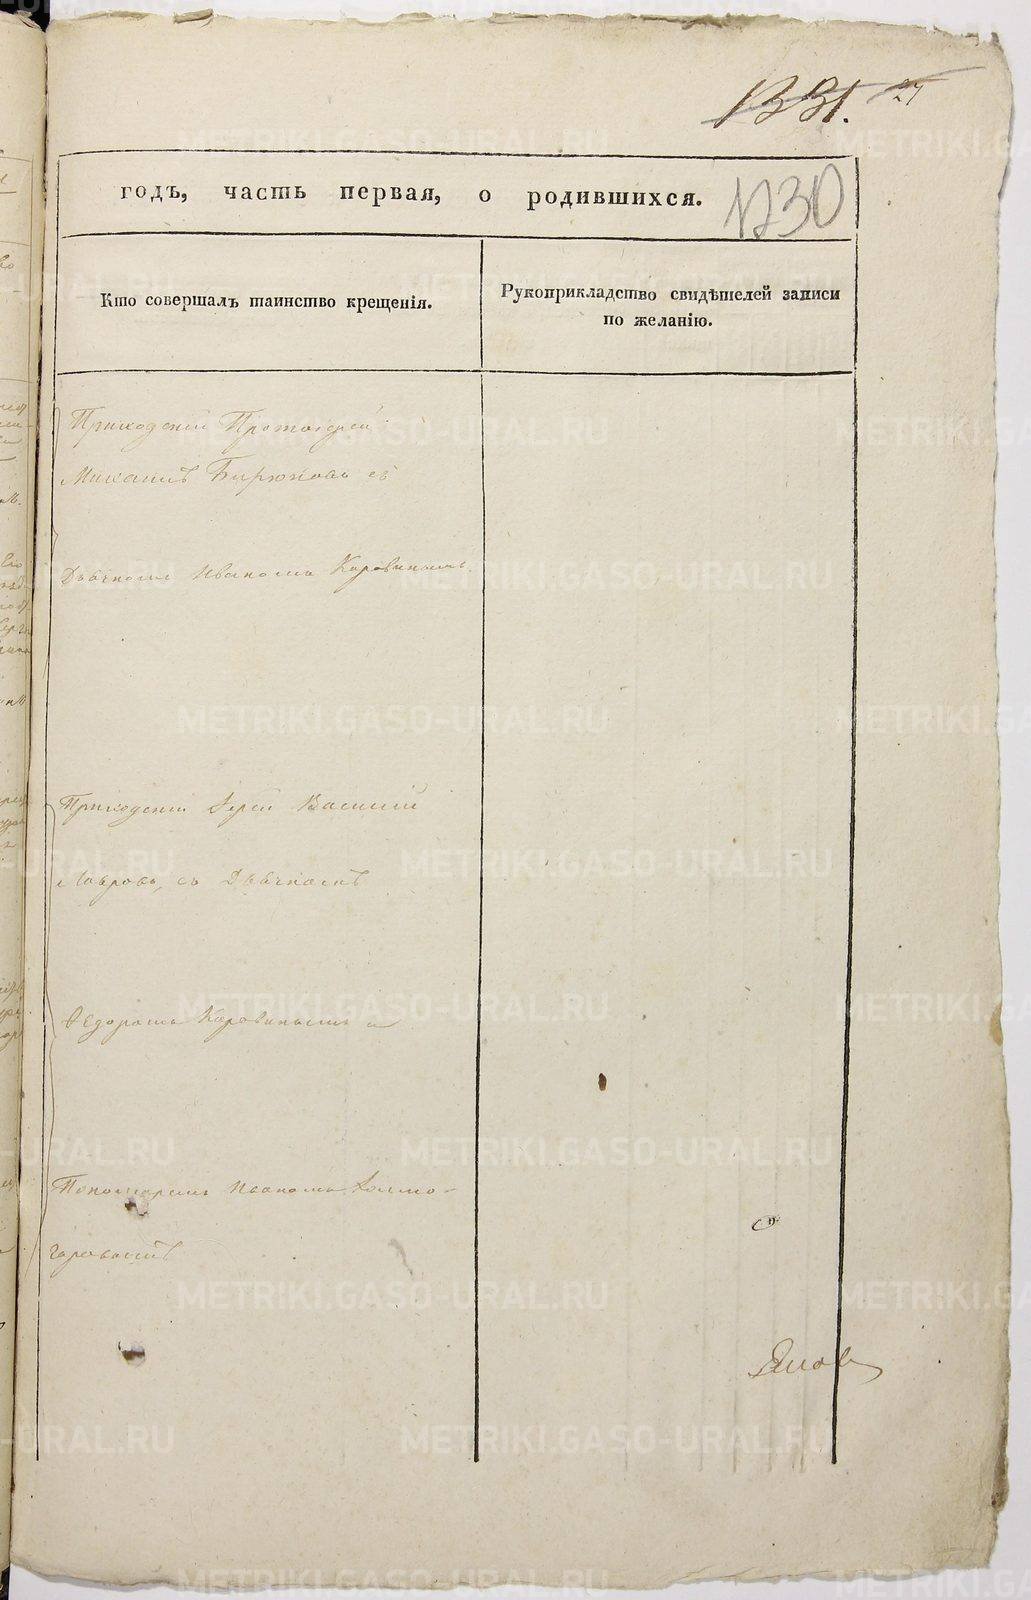 1331. 27
годъ, часть первая, о родившихся. 1230
Кто совершалъ таинство крещенія.
Рукоприкладство свидѣтелей записи
по желанію.
Приходскій Протоіерей
Михаилъ Бирюковъ съ
Дьячкомъ Иваномъ Коровинымъ
Приходскій Іерей Василій
Лавровъ, съ Дьячкомъ
Ѳедоромъ Коровинымъ и
Пономаремъ Иваномъ Холмо-
горовымъ
METRIKI.GASO-URAL.RU